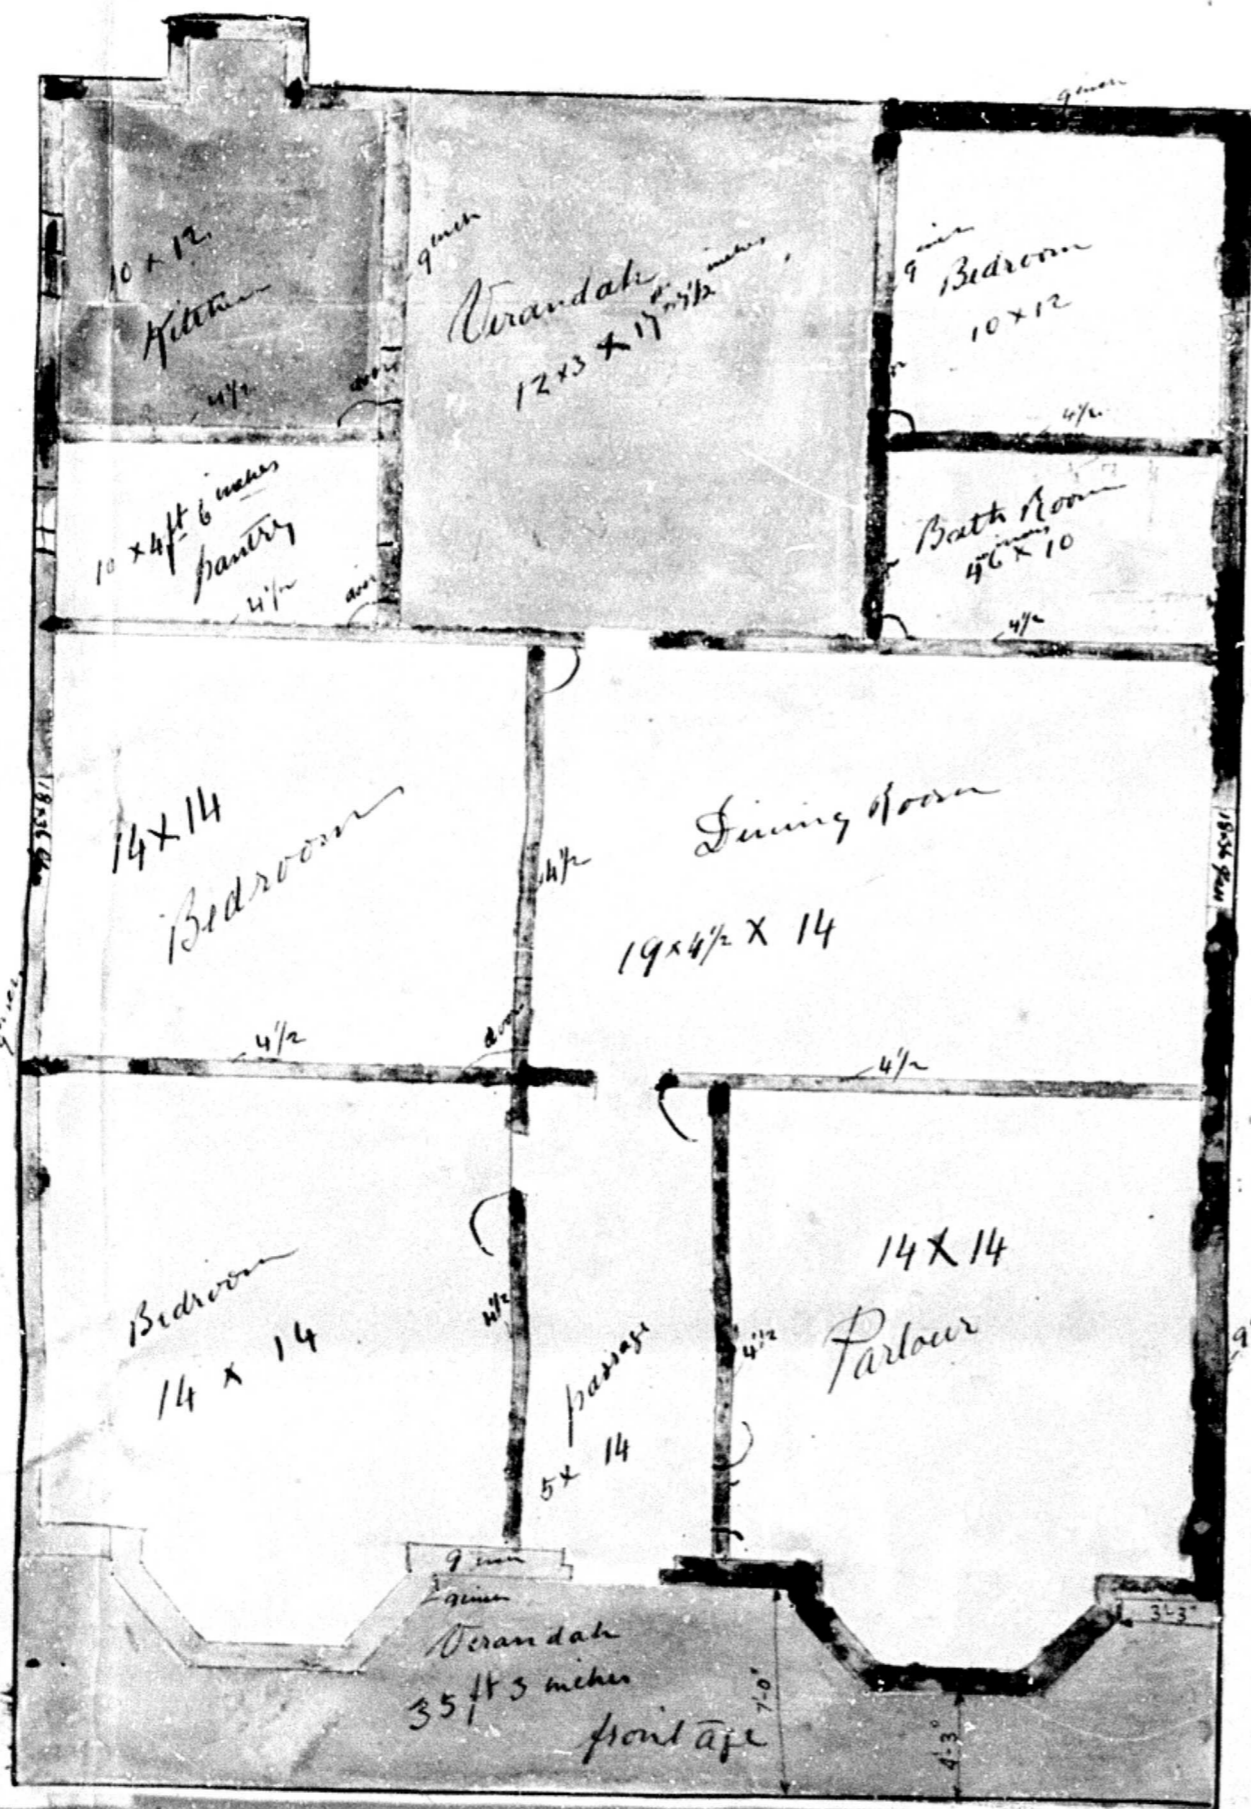 9 inch
10 x 12
Kitchen
4½
door
9 inch
Verandah
12 x 3 x 17 4½ inches
9 inch
Bedroom
10 x 12
4½
10 x 4 ft 6 inches
pantry
4½
door
Bath Room
4 6 inches x 10
4½
14 x 14
Bedroom
4½
Dining Room
19 x 4½ x 14
18x36
18x36
4½
door
4½
Bedroom
14 x 14
4½
passage
5 x 14
4½
14 x 14
Parlour
9 inch
9 inch
Verandah
35 ft 3 inches
frontage
7'-0"
4'-3"
3'-3"